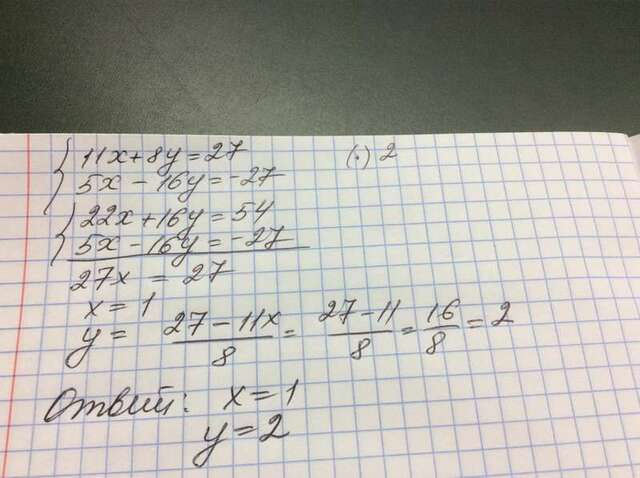 { 11x + 8y = 27 (·) 2
5x - 16y = -27
{ 22x + 16y = 54
5x - 16y = -27
27x = 27
x = 1
y = (27 - 11x)/8 = (27 - 11)/8 = 16/8 = 2
Ответ: x = 1
y = 2